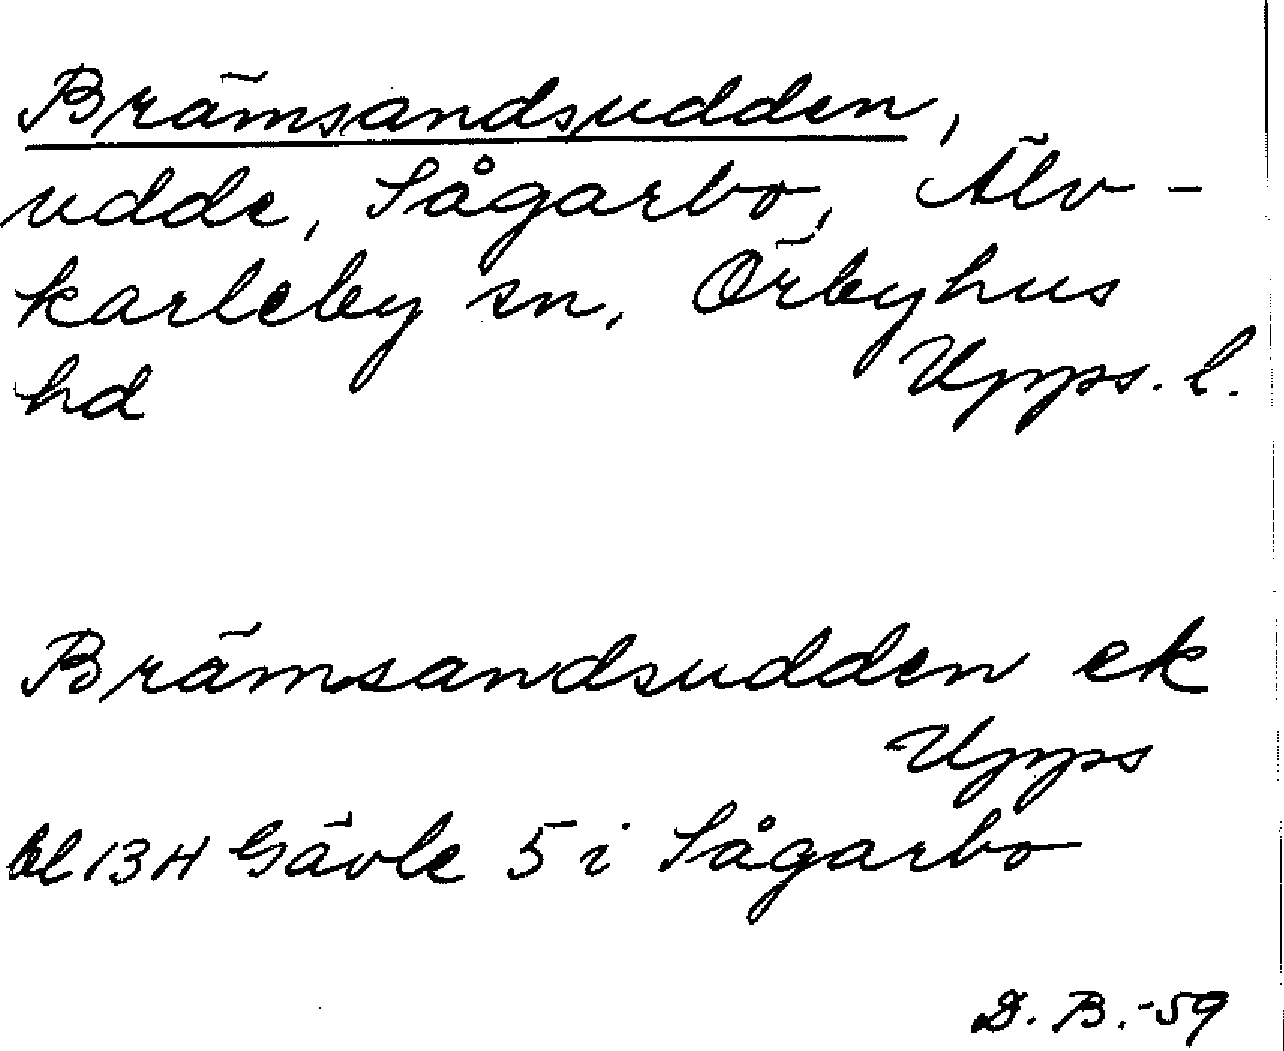 Brämsandsudden,
udde, Sågarbo, Älv-
karleby sn, Örbyhus
hd Upps. l.
Brämsandsudden ek
Upps
bl 13H Gävle 5 i Sågarbo
D. B.-59